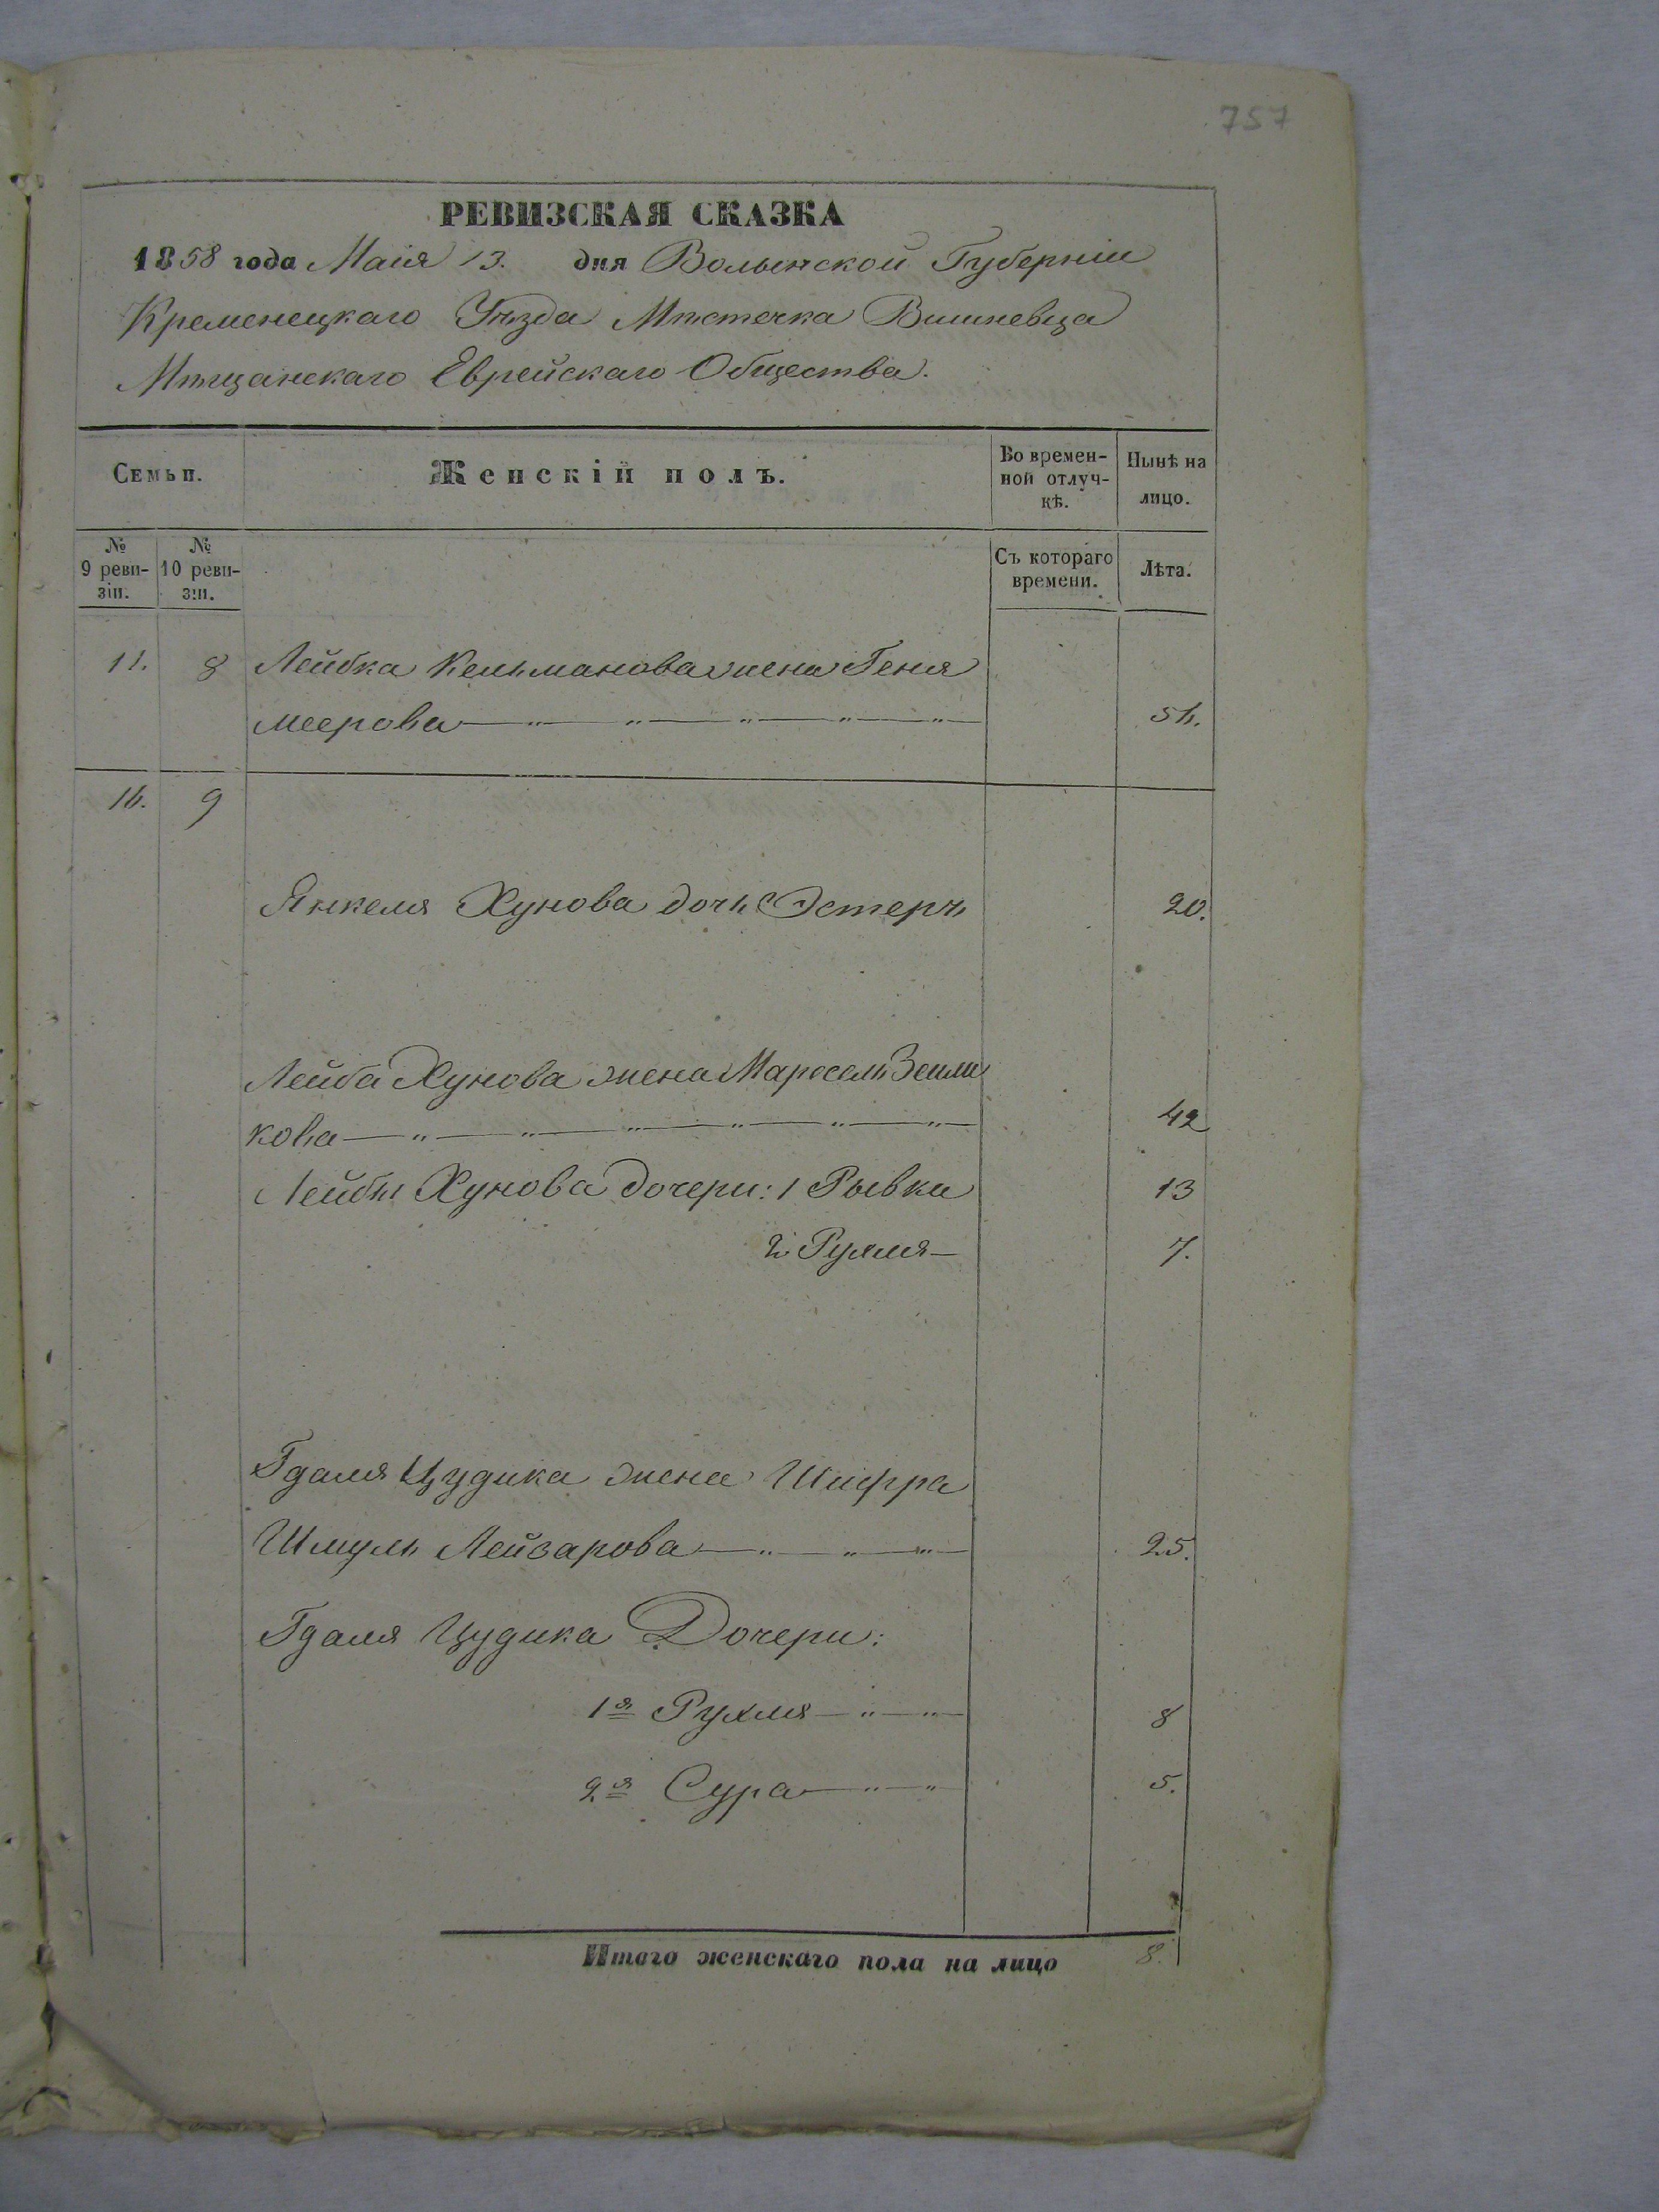 757
РЕВИЗСКАЯ СКАЗКА
1858 года Маія 13. дня Волынской Губерніи
Кременецкаго Уѣзда Мѣстечка Вишневца
Мѣщанскаго Еврейскаго Общества.
Семьи. Женскій полъ. Во времен- Нынѣ на
ной отлуч- лицо.
кѣ.
№ № Съ котораго Лѣта.
9 реви- 10 реви- времени.
зіи. зіи.
11. 8 Лейбка Кельманова жена Геня
Меерова — " — " — " — " — " — 54.
16. 9
Янкеля Хунова дочь Эстеръ 20.
Лейба Хунова жена Зейли
кова — " — " — " — " — " — " — 42
Лейбы Хунова дочери: 1 Рывка 13
2 Рухля — 7.
Гдаля Цудика жена Шифра
Шмуль Лейзарова — " — " — " — 25.
Гдаля Цудика Дочери:
1я Рухля — " — " 8
2я Сура — " — " 5.
Итого женскаго пола на лицо 8.